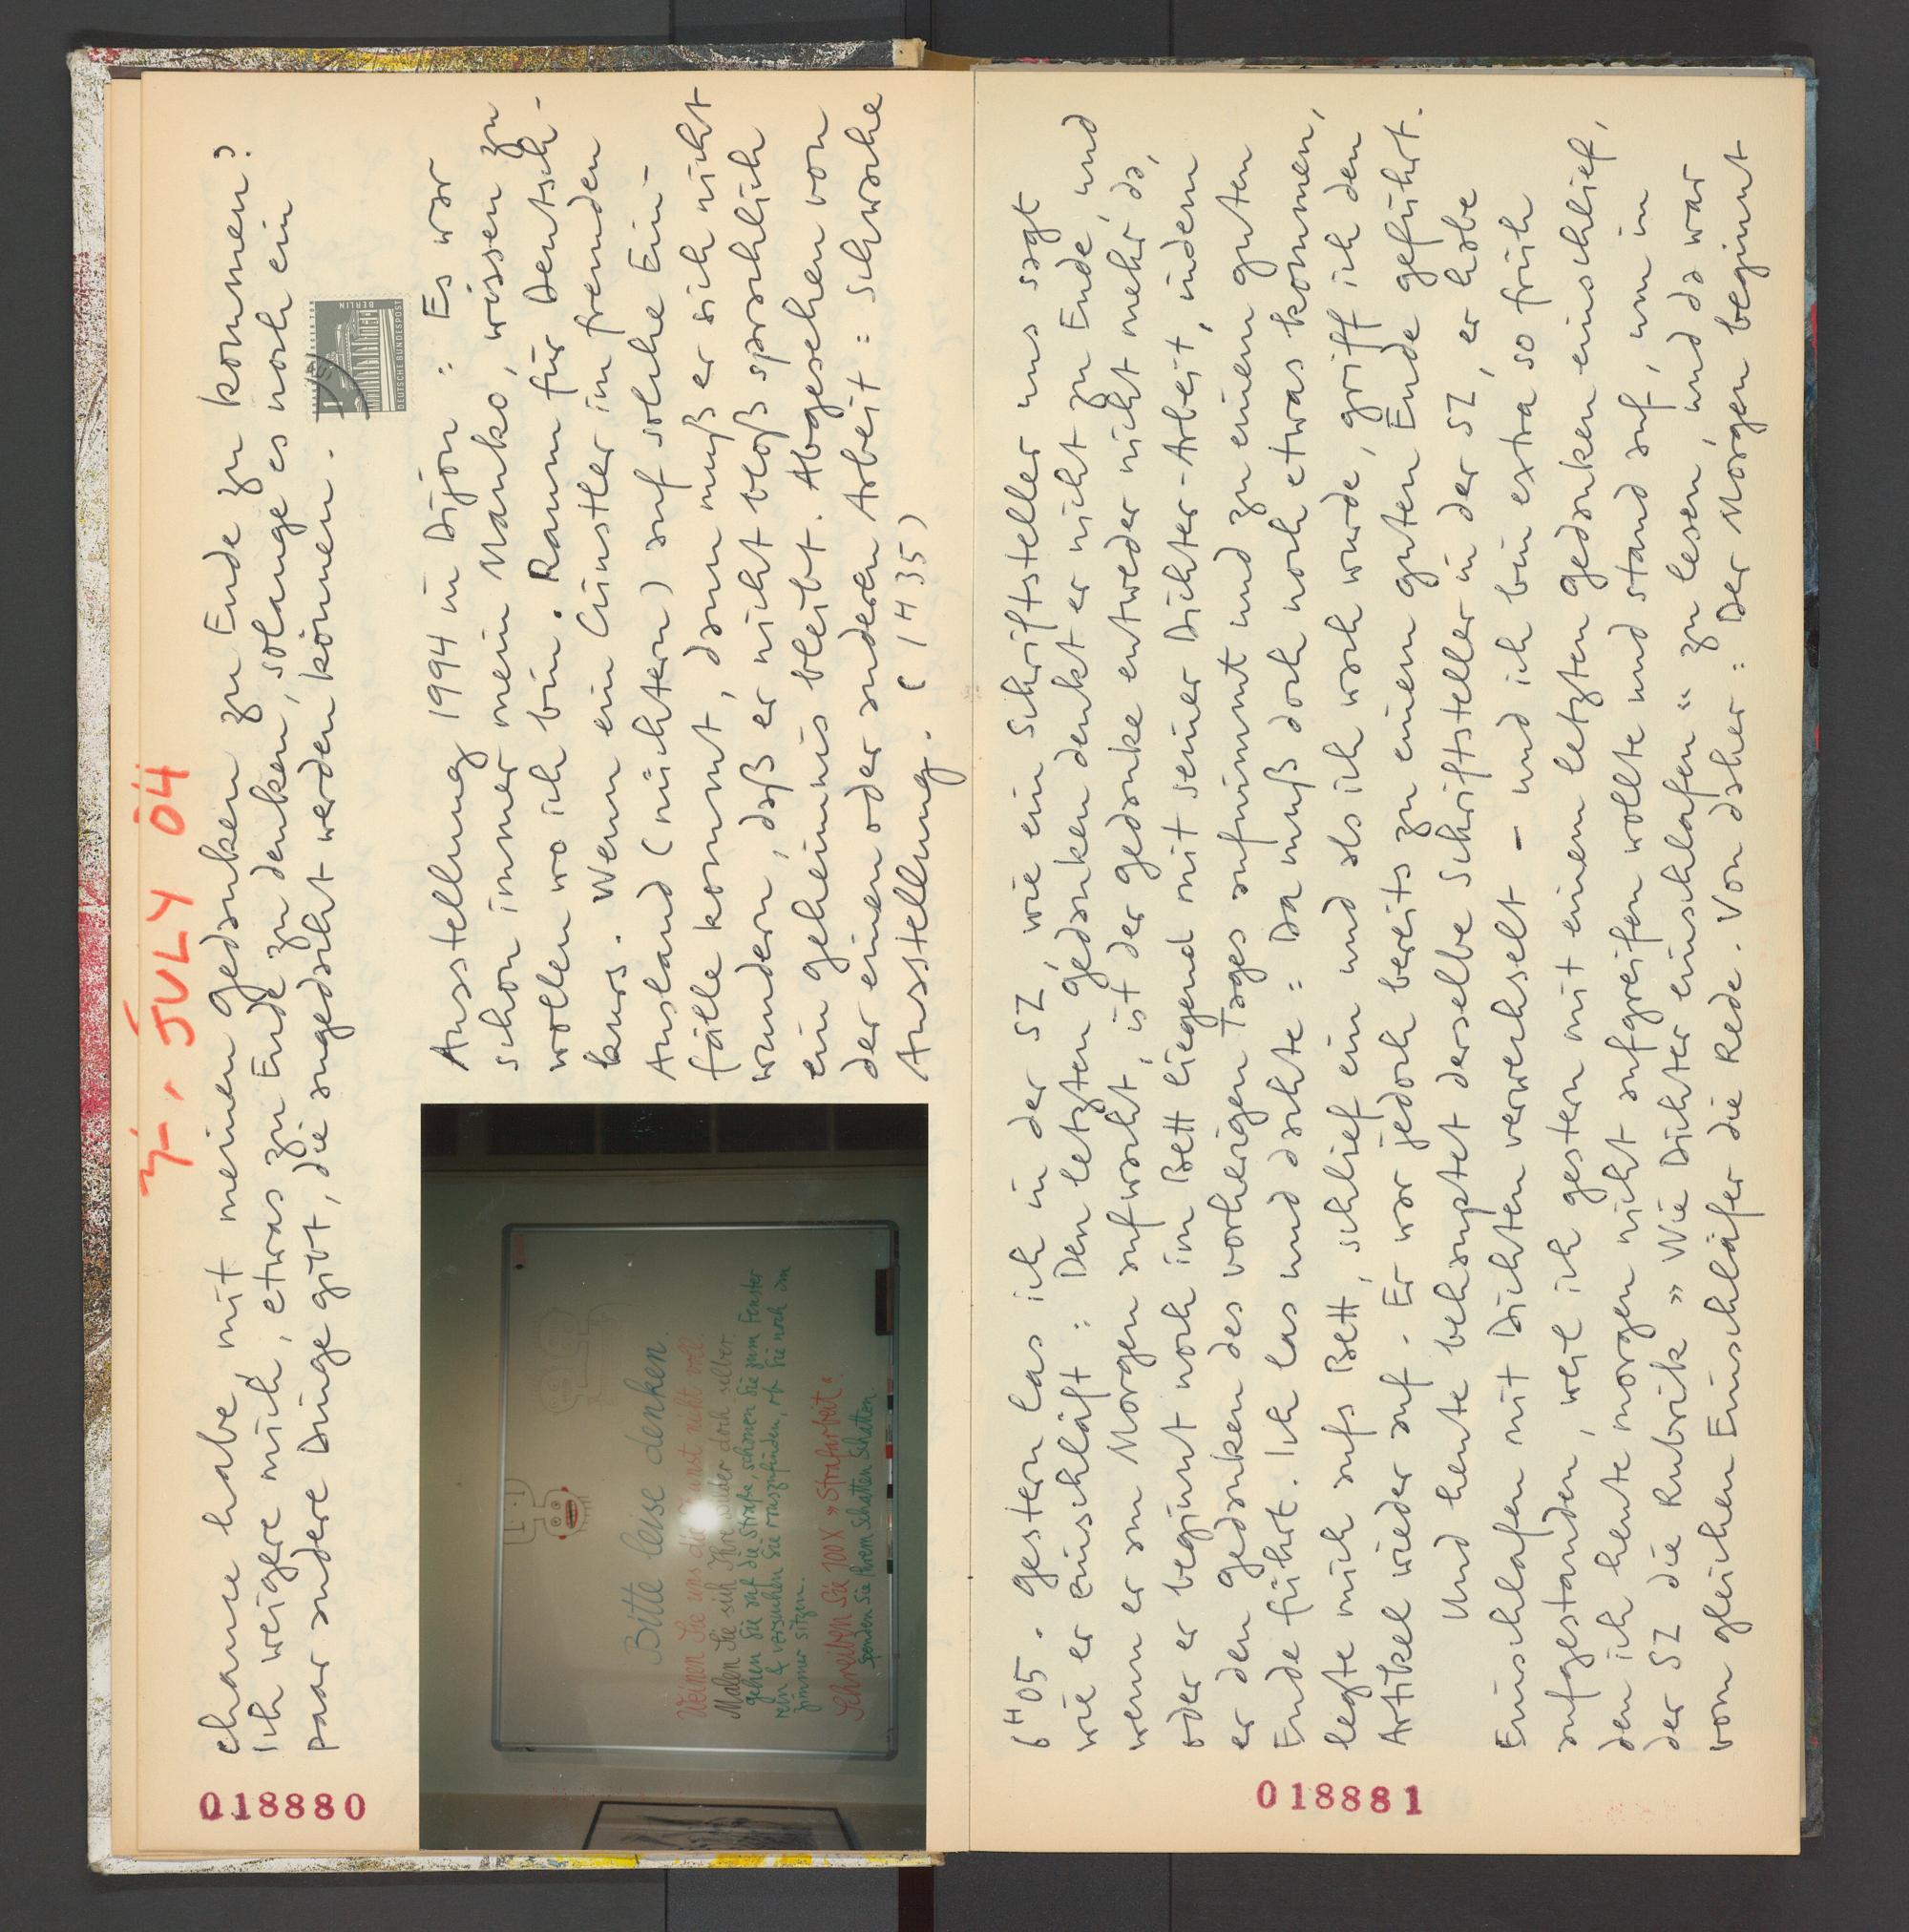 7. JULY 04
chance habe, mit meinen Gedanken zu Ende zu kommen?
Ich weigere mich, etwas zu Ende zu denken, solange es noch ein
paar andere Dinge gibt, die angedacht werden können.
DEUTSCHE BUNDESPOST
BERLIN
Ausstellung 1994 in Dijon: Es war
schon immer mein Manko, wissen zu
wollen wo ich bin. Raum für Deutsch-
kurs. Wenn ein Künstler im fremden
Ausland (nüchtern) auf solche Ein-
fälle kommt, dann muß er sich nicht
wundern, daß er nicht bloß sprachlich
ein Geheimnis bleibt. Abgesehen von
der einen oder anderen Arbeit: Schwache
Ausstellung. (1435)
Bitte leise denken.
Weinen Sie uns die Kunst nicht voll
Malen Sie sich Ihre Bilder doch selber.
gehen Sie auf die Straße, schauen Sie zum Fenster
rein & versuchen Sie rauszufinden, ob Sie noch im
Zimmer sitzen.
Schreiben Sie 100 X »Strafarbeit«
Spenden Sie Ihrem Schatten Schatten.
018880
6H05. Gestern las ich in der SZ, wie ein Schriftsteller uns sagt
wie er einschläft: Den letzten Gedanken denkt er nicht zu Ende, und
wenn er am Morgen aufwacht, ist der Gedanke entweder nicht mehr da,
oder er beginnt noch im Bett liegend mit seiner Dichter-Arbeit, indem
er den Gedanken des vorherigen Tages aufnimmt und zu einem guten
Ende führt. Ich las und dachte: Da muß doch noch etwas kommen,
legte mich aufs Bett, schlief ein und als ich wach wurde, griff ich den
Artikel wieder auf. Er war jedoch bereits zu einem guten Ende geführt.
Und heute behauptet derselbe Schriftsteller in der SZ, er habe
Einschlafen mit Dichten verwechselt – und ich bin extra so früh
aufgestanden, weil ich gestern mit einem letzten Gedanken einschlief,
den ich heute morgen nicht aufgreifen wollte und stand auf, um in
der SZ die Rubrik »Wie Dichter einschlafen« zu lesen, und da war
vom gleichen Einschläfer die Rede. Von daher: Der Morgen beginnt
018881